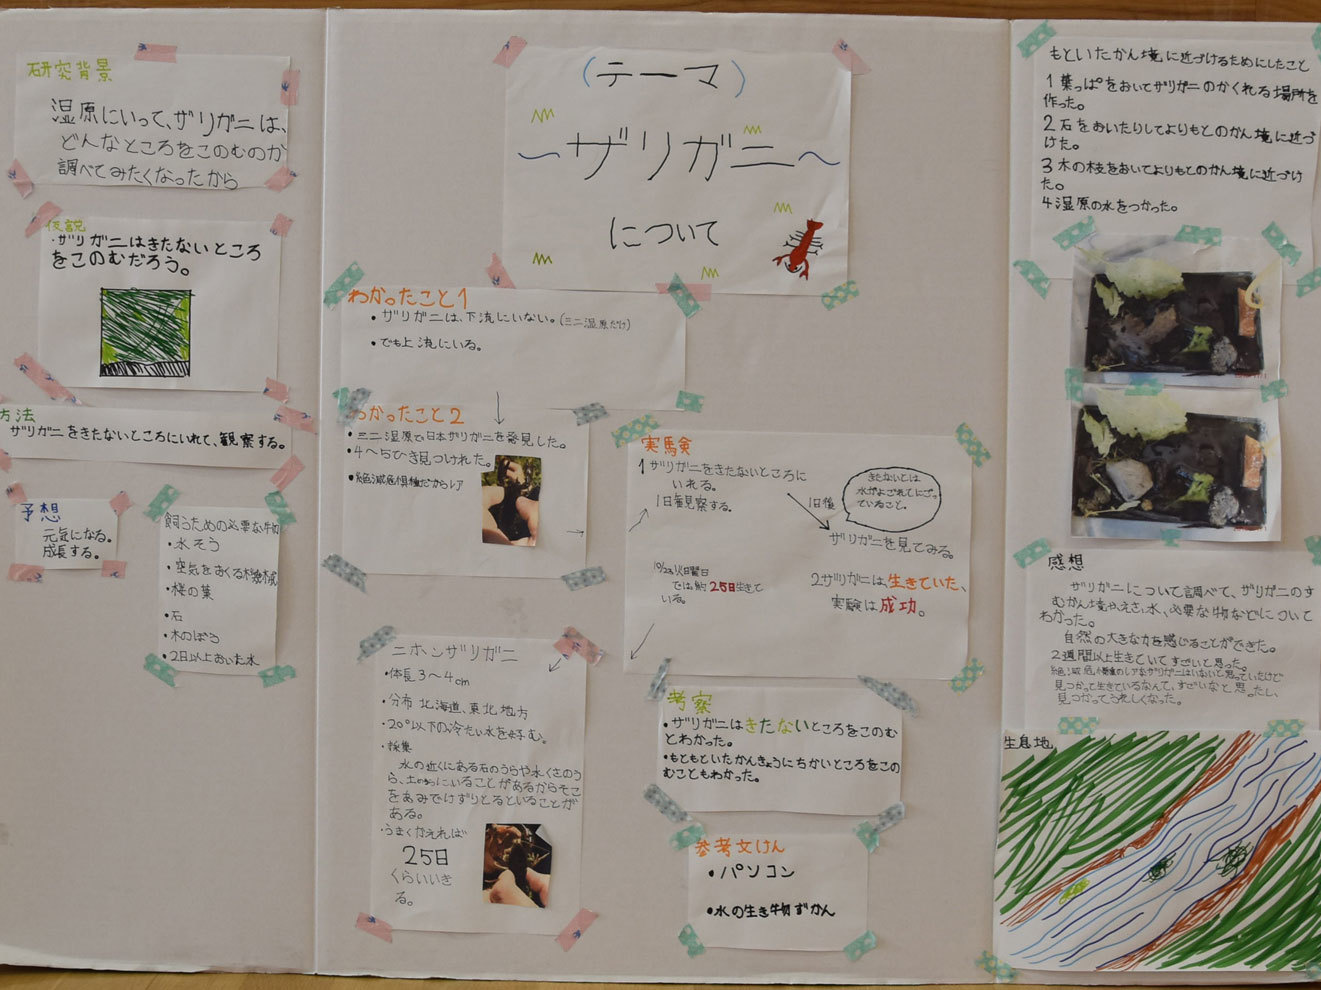 研究背景
湿原にいって、ザリガニは、
どんなところをこのむのか
調べてみたくなったから
仮説
・ザリガニはきたないところ
をこのむだろう。
方法
ザリガニをきたないところにいれて、観察する。
予想
元気になる。
成長する。
飼うための必要な物
・水そう
・空気をおくる機械
・桜の葉
・石
・木のぼう
・2日以上おいた水
(テーマ)
〜ザリガニ〜
について
わかったこと1
・ザリガニは、下流にいない。(ミニ湿原だけ)
・でも上流にいる。
わかったこと2
・ミニ湿原で日本ザリガニを発見した。
・4〜5ひき見つけれた。
・絶滅危惧種だからレア
ニホンザリガニ
・体長3〜4cm
・分布 北海道、東北地方
・20°以下の冷たい水を好む。
・採集
水の近くにある石のうらや水くさのう
ら、土の中にいることがあるからそこ
をあみでけずりとるといることが
ある。
・うまくかえれば
25日
くらいいき
る。
実験
1ザリガニをきたないところに
いれる。
1日毎観察する。
きたないとは
水がよごれてにごっ
ていること。
1日後
ザリガニを見てみる。
10/28火曜日
では約25日生きて
いる。
2ザリガニは、生きていた、
実験は成功。
考察
・ザリガニはきたないところをこのむ
とわかった。
・もともといたかんきょうにちかいところをこの
むこともわかった。
参考文けん
・パソコン
・水の生き物ずかん
もといたかん境に近づけるためにしたこと
1葉っぱをおいてザリガニのかくれる場所を
作った。
2石をおいたりしてよりもとのかん境に近づ
けた。
3木の枝をおいてよりもとのかん境に近づけ
た。
4湿原の水をつかった。
感想
ザリガニについて調べて、ザリガニのす
むかん境やえさ、水、必要な物などについて
わかった。
自然の大きな力を感じることができた。
2週間以上生きていてすごいと思った。
絶滅危惧種のレアなザリガニはいないと思っていたけど
見つかって生きているなんて、すごいなと思ったし、
見つかってうれしくなった。
生息地